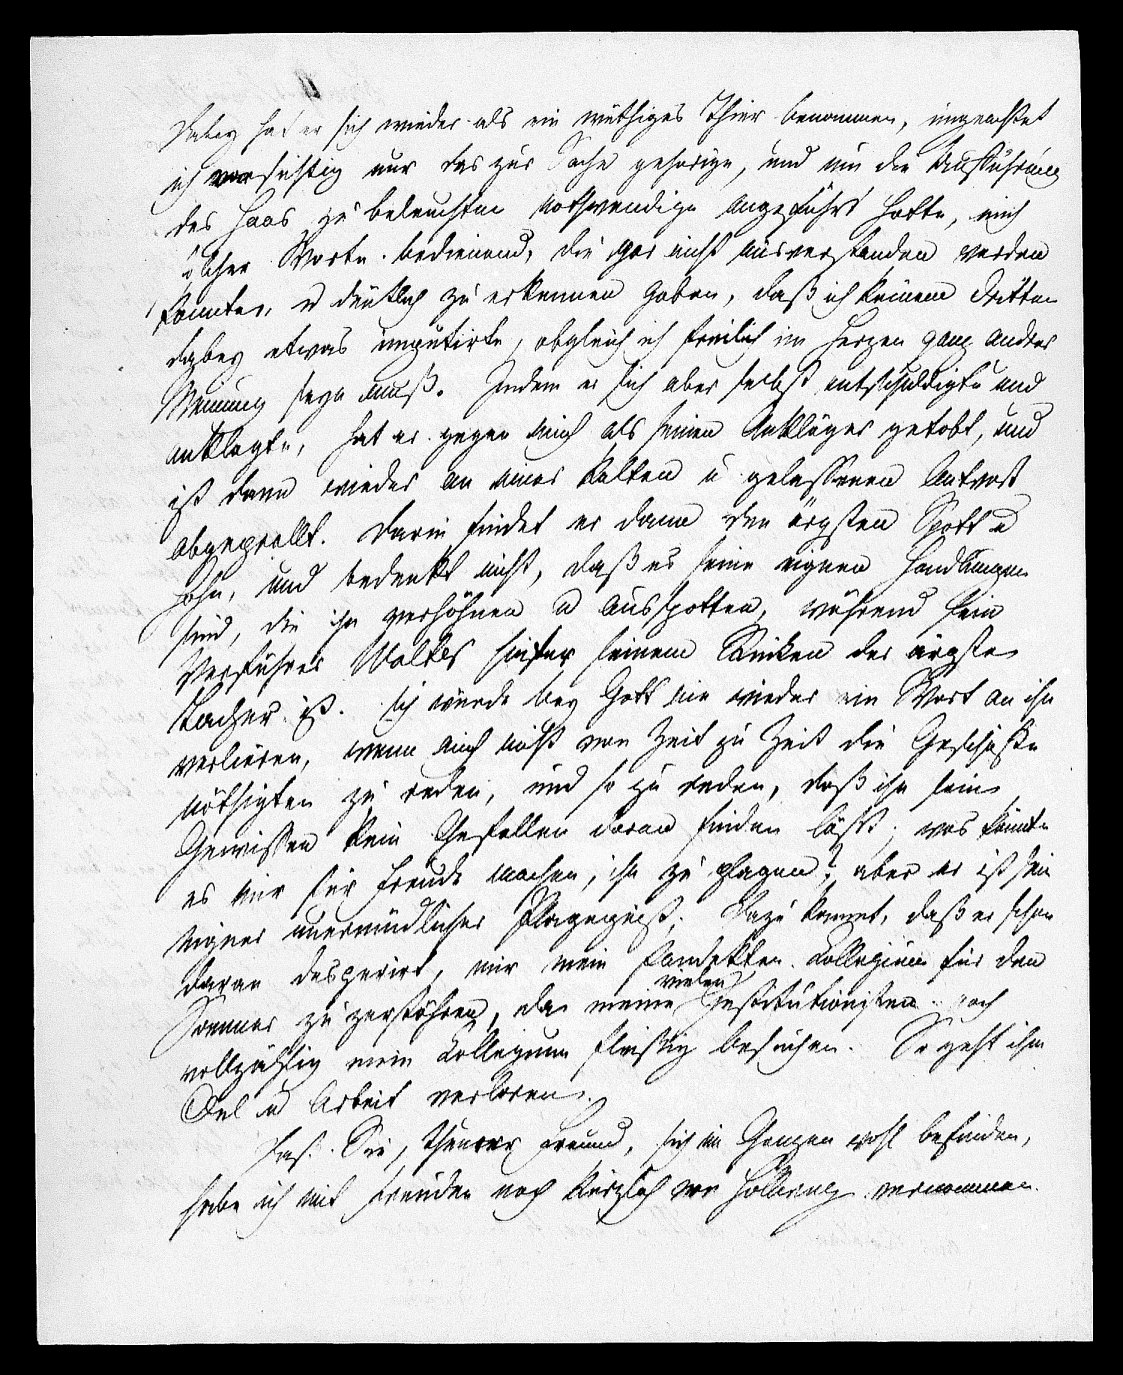 Dabey hat er sich wieder als ein wüthiges Thier benommen, ungeachtet
ich vorsichtig nur das zur Sache gehörige, und um die Ausführung
des Haas zu beleuchten nothwendige angeführt hatte, mich
solcher Worte bedienend, die gar nicht misverstanden werden
konnten, u deutlich zu erkennen gaben, daß ich keinem Dritten
dabey etwas imputirte, obgleich ich freilich im Herzen ganz andrer
Meinung seyn muß. Indem er sich aber selbst entschuldigte und
anklagte, hat er gegen mich als seinen Ankläger getobt, und
ist dann wieder an einer kalten u gelassenen Antwort
abgeprallt. Darin findet er dann den ärgsten Spott u
Hohn, und bedenkt nicht, daß es seine eignen Handlungen
sind, die ihn verhöhnen u ausspotten, während sein
Verführer hinter seinem Rücken der ärgste
Lacher ist. Ich würde bey Gott nie wieder ein Wort an ihn
verlieren, wenn mich nicht von Zeit zu Zeit die Geschäfte
nöthigten zu reden, und so zu reden, daß ihn sein
Gewissen kein Gefallen daran finden läßt; was könnte
es mir für Freude machen, ihn zu plagen? aber er ist sein
eigner unermüdlicher Plagegeist. Dazu kommt, daß er schon
daran desperirt, mir mein Pandekten Collegium für den
Sommer zu zerstöhren, da meine vielen Institutionisten noch
vollzählig mein Collegium fleißig besuchen. So geht ihm
Oel u Arbeit verloren.
Daß Sie, theurer Freund, sich im Ganzen wohl befinden,
habe ich mit Freuden noch kürzlich von vernommen.